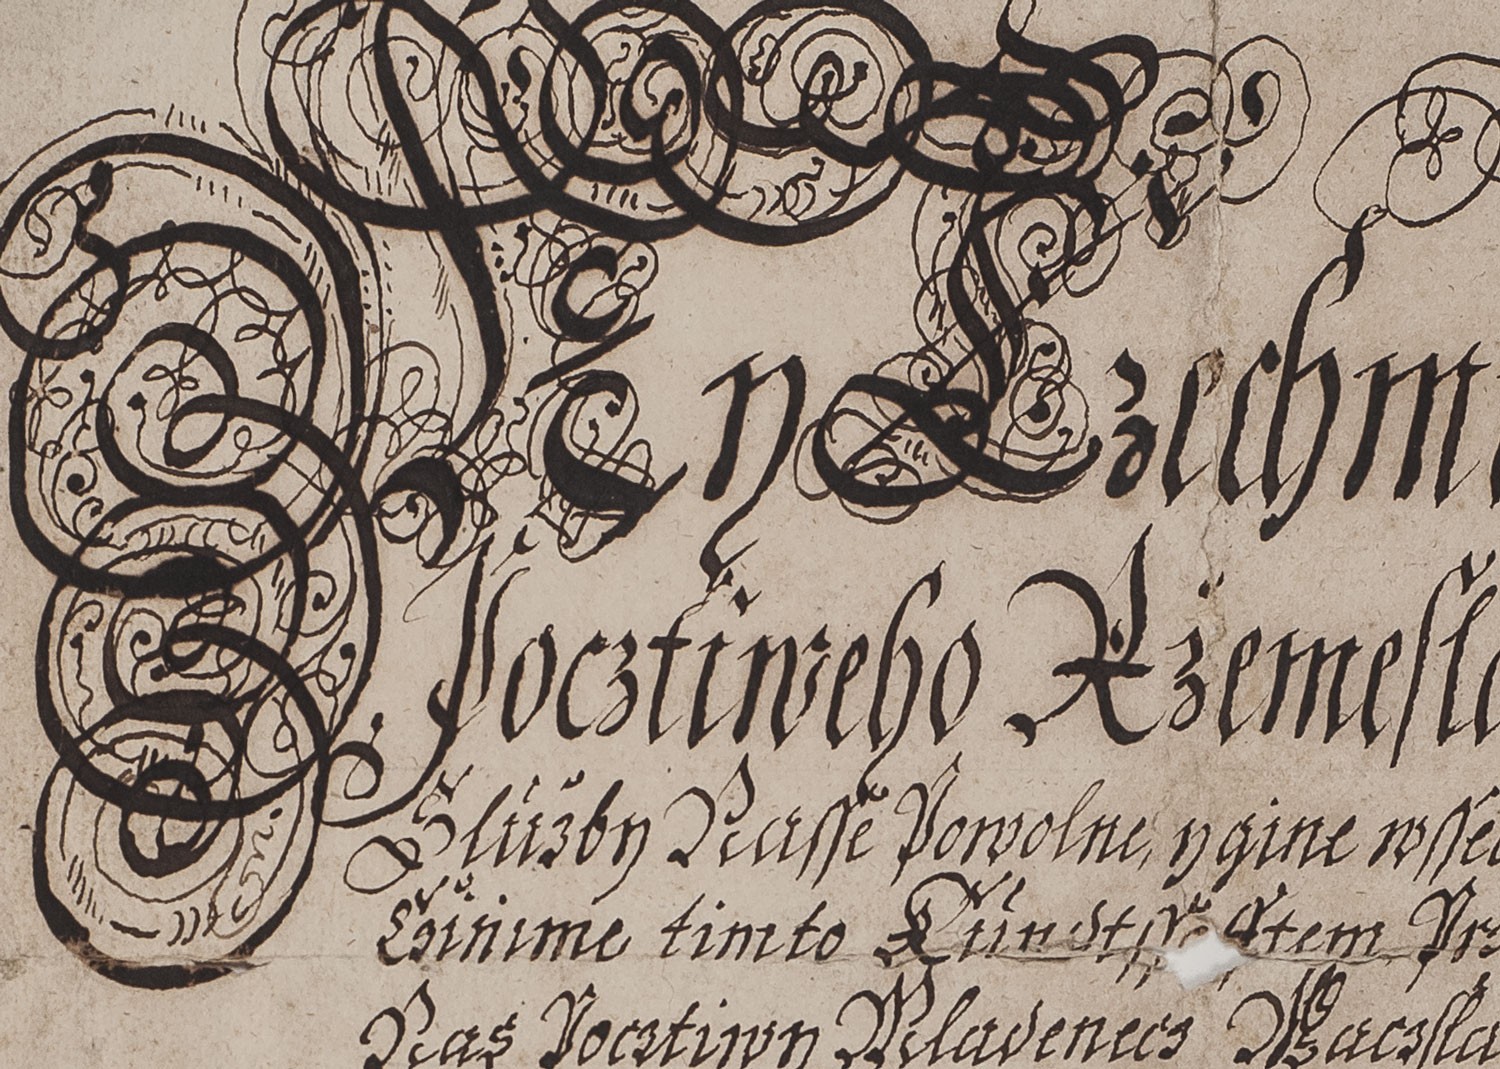 My Czechm
Pocztiweho Rzemesla
Služby Nasse Powolne, y gine wsse
Czinime timto Kundtss Lÿstem Prz
Nas Pocztiwy Mladenecz Waczsla